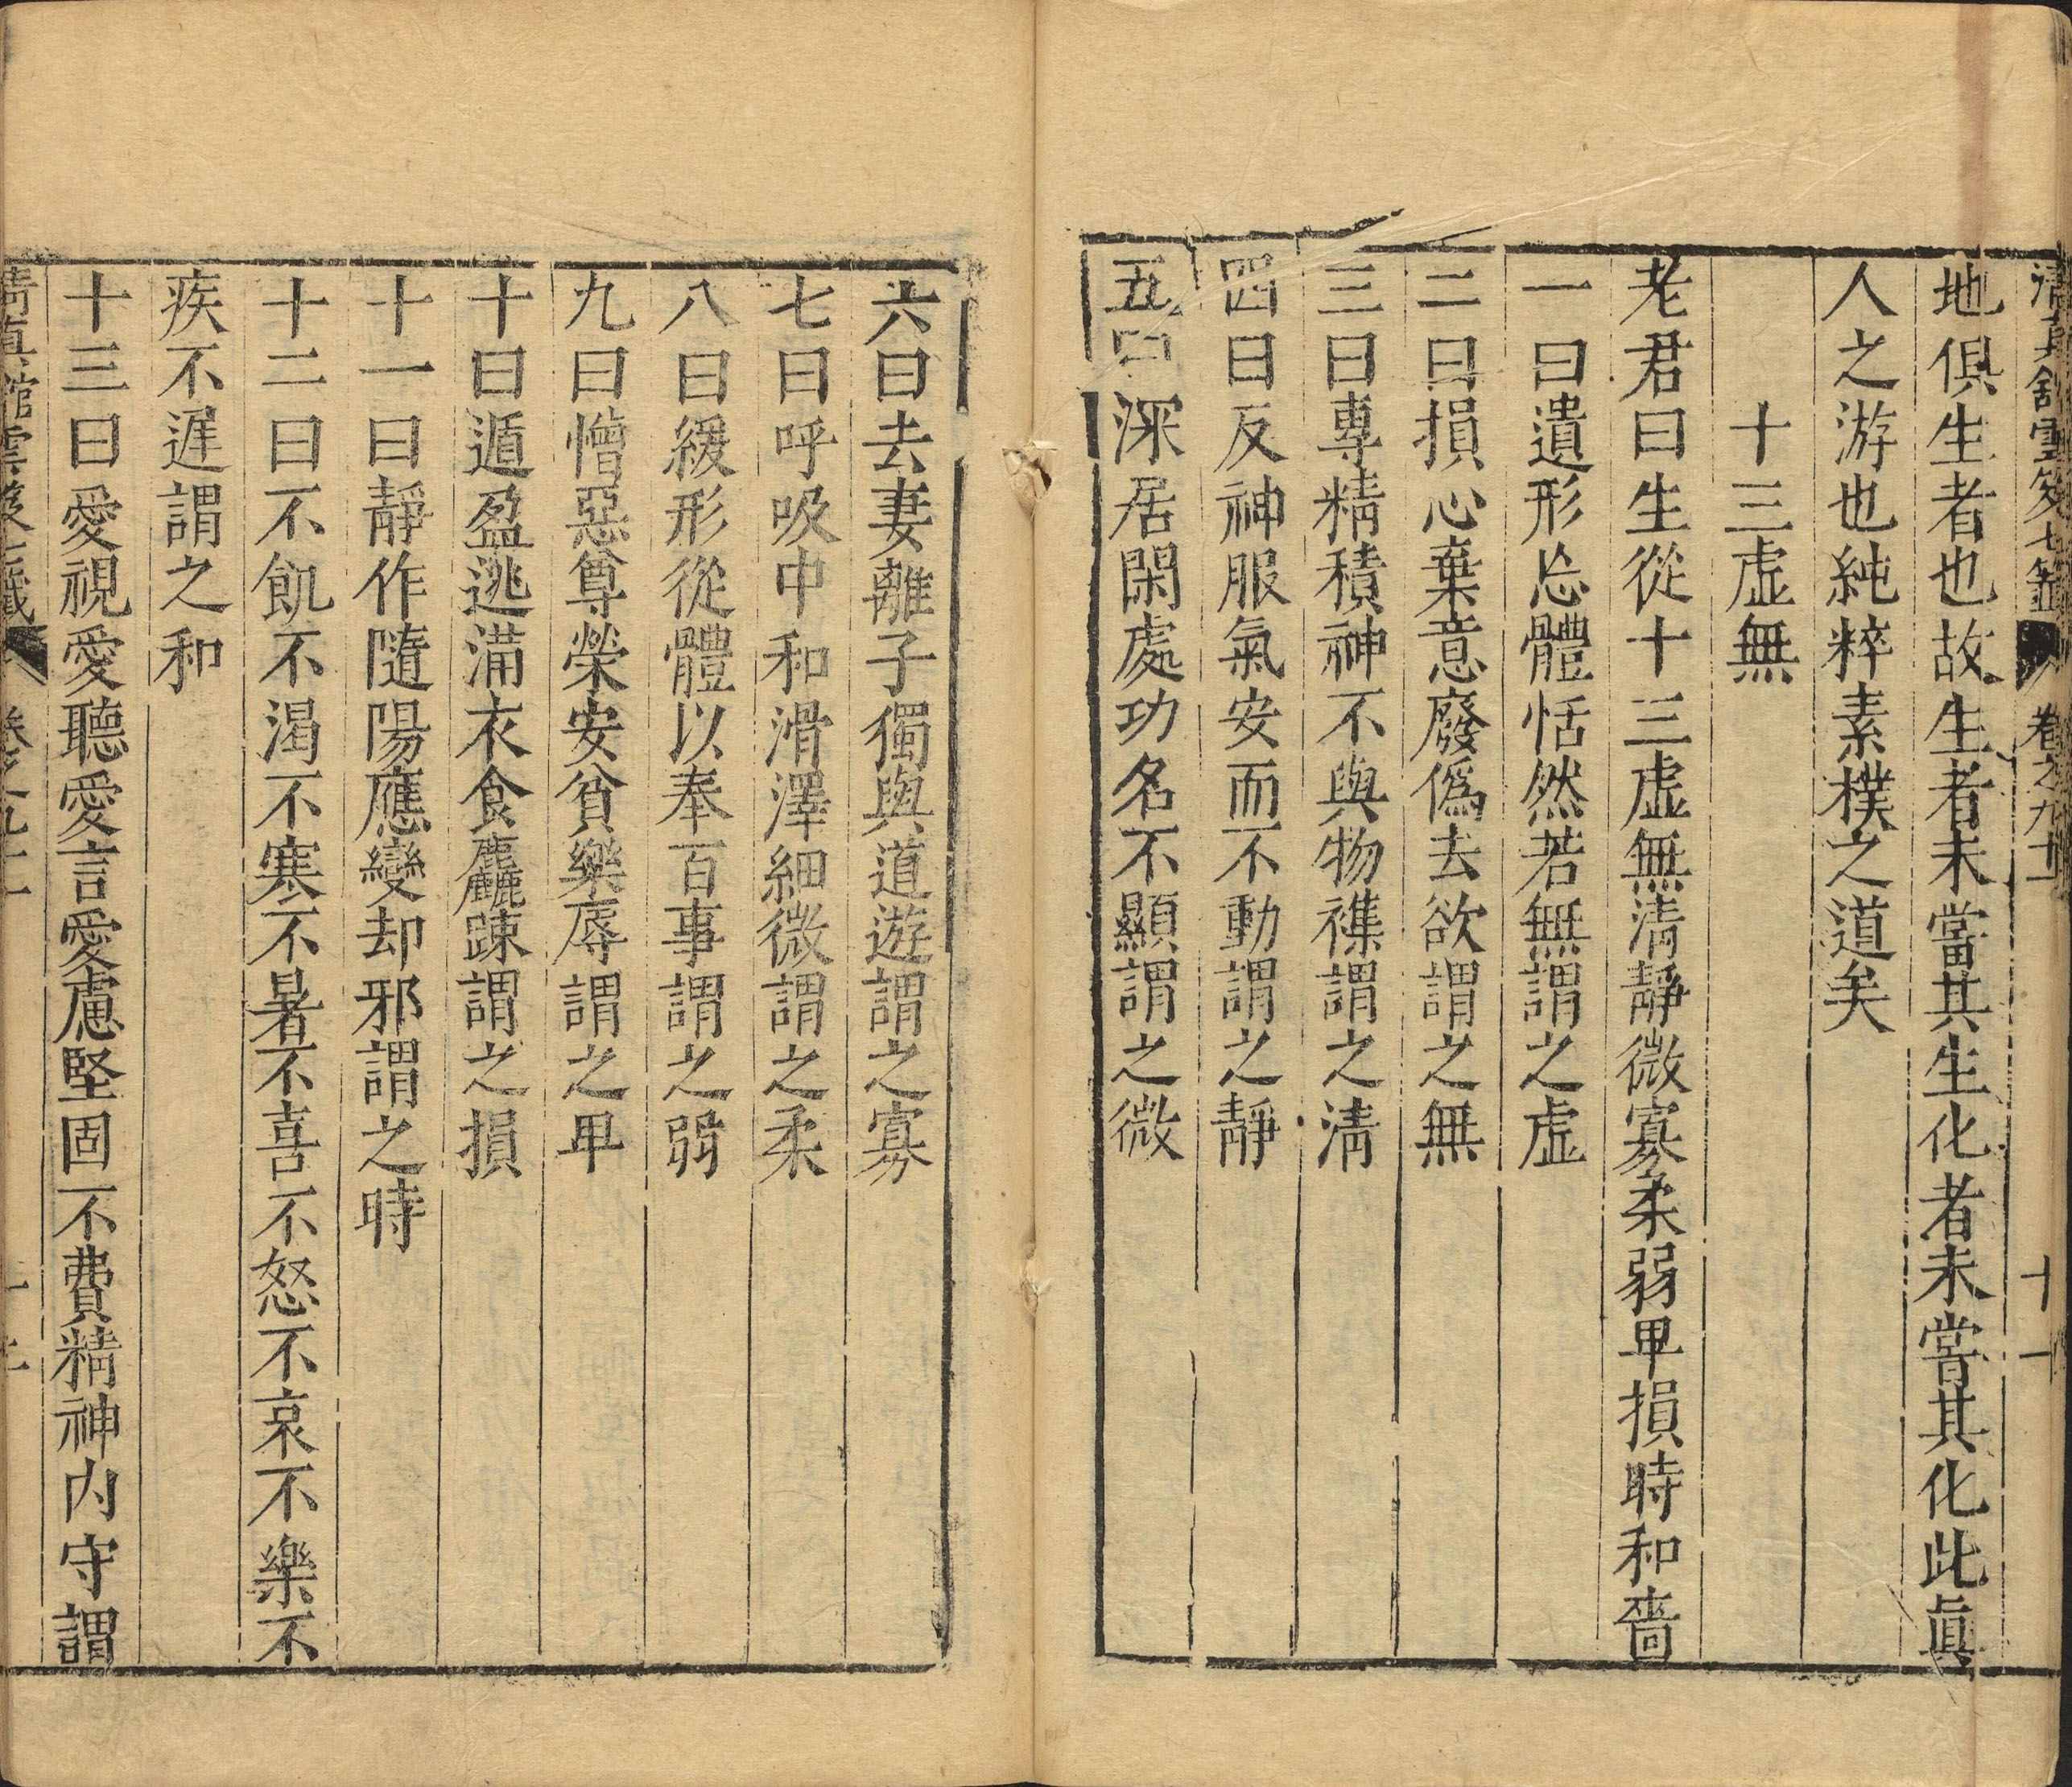 地俱生者也故生者未當其生化者未嘗其化此眞
人之游也純粹素樸之道矣
十三虛無
老君曰生從十三虛無清靜微寡柔弱卑損時和嗇
一曰遺形忘體恬然若無謂之虛
二曰損心棄意廢僞去欲謂之無
三曰專精積神不與物襍謂之清
四曰反神服氣安而不動謂之靜
五曰深居閑處功名不顯謂之微
六曰去妻離子獨與道遊謂之寡
七曰呼吸中和滑澤細微謂之柔
八曰緩形從體以奉百事謂之弱
九曰憎惡尊榮安貧樂辱謂之卑
十曰遁盈逃滿衣食麤踈謂之損
十一曰靜作隨陽應變却邪謂之時
十二曰不飢不渴不寒不暑不喜不怒不哀不樂不
疾不遲謂之和
十三曰愛視愛聽愛言愛慮堅固不費精神内守謂